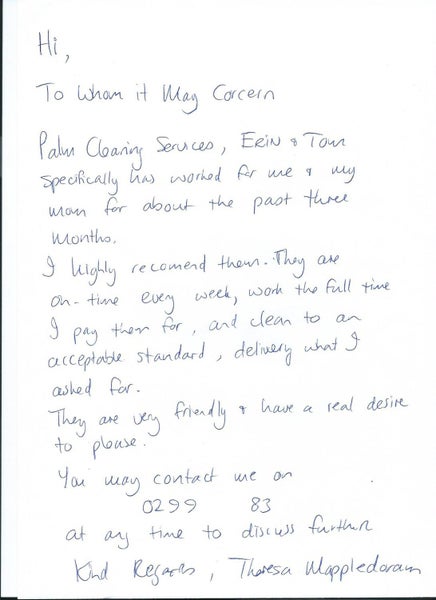 Hi,
To Whom it May Concern
Palm Cleaning Services, Erin & Tom
specifically has worked for me & my
mom for about the past three
months.
I highly recomend them. They are
on-time every week, work the full time
I pay them for, and clean to an
acceptable standard, delivery what I
asked for.
They are very friendly & have a real desire
to please.
You may contact me on
0299 83
at any time to discuss further
Kind Regards, Theresa Mappledoram